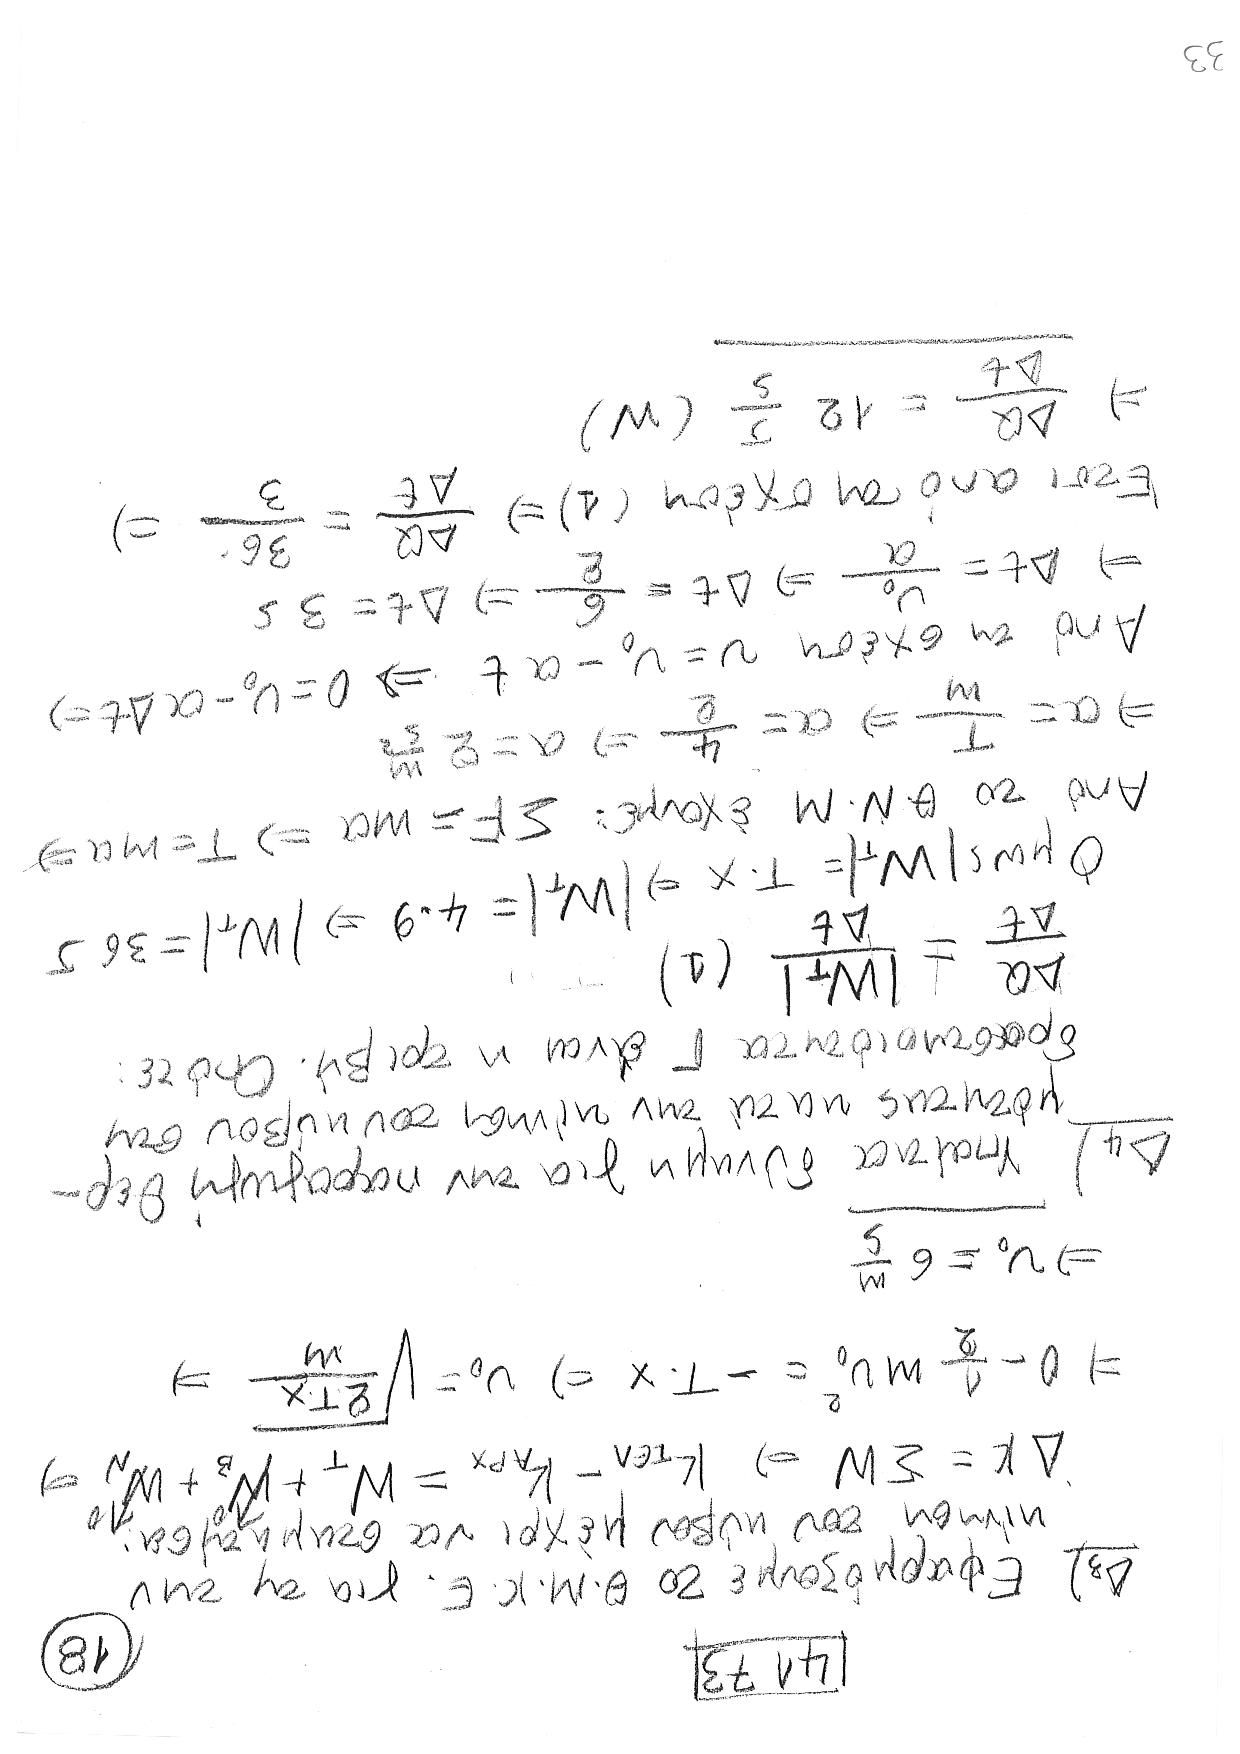 4173
18
Δ3) Εφαρμόζουμε το Θ.Μ.Κ.Ε. για τη την
κίνηση του κύβου μέχρι να σταματήσει:
ΔΚ = ΣW ⇒ K_ΤΕΛ - K_ΑΡΧ = W_T + W_B^0 + W_N^0 ⇒
⇒ 0 - 1/2 mυ₀² = -T·x ⇒ υ₀ = √(2T·x/m) ⇒
⇒ υ₀ = 6 m/s
Δ4) Υπαίτια δύναμη για την παραγωγή θερ-
μότητας κατά την κίνηση του κύβου στη
δραστηριότητα Γ είναι η τριβή. Οπότε:
ΔQ/Δt = |W_T|/Δt (1)
Όμως |W_T| = T·x ⇒ |W_T| = 4·9 ⇒ |W_T| = 36 J
Από το Θ.Ν.Μ έχουμε: ΣF = ma ⇒ T = ma ⇒
⇒ a = T/m ⇒ a = 4/2 ⇒ a = 2 m/s²
Από τη σχέση υ = υ₀ - a t ⇒ 0 = υ₀ - a Δt ⇒
⇒ Δt = υ₀/a ⇒ Δt = 6/2 ⇒ Δt = 3 s
Έτσι από τη σχέση (1) ⇒ ΔQ/Δt = 36/3 ⇒
⇒ ΔQ/Δt = 12 J/s (W)
33